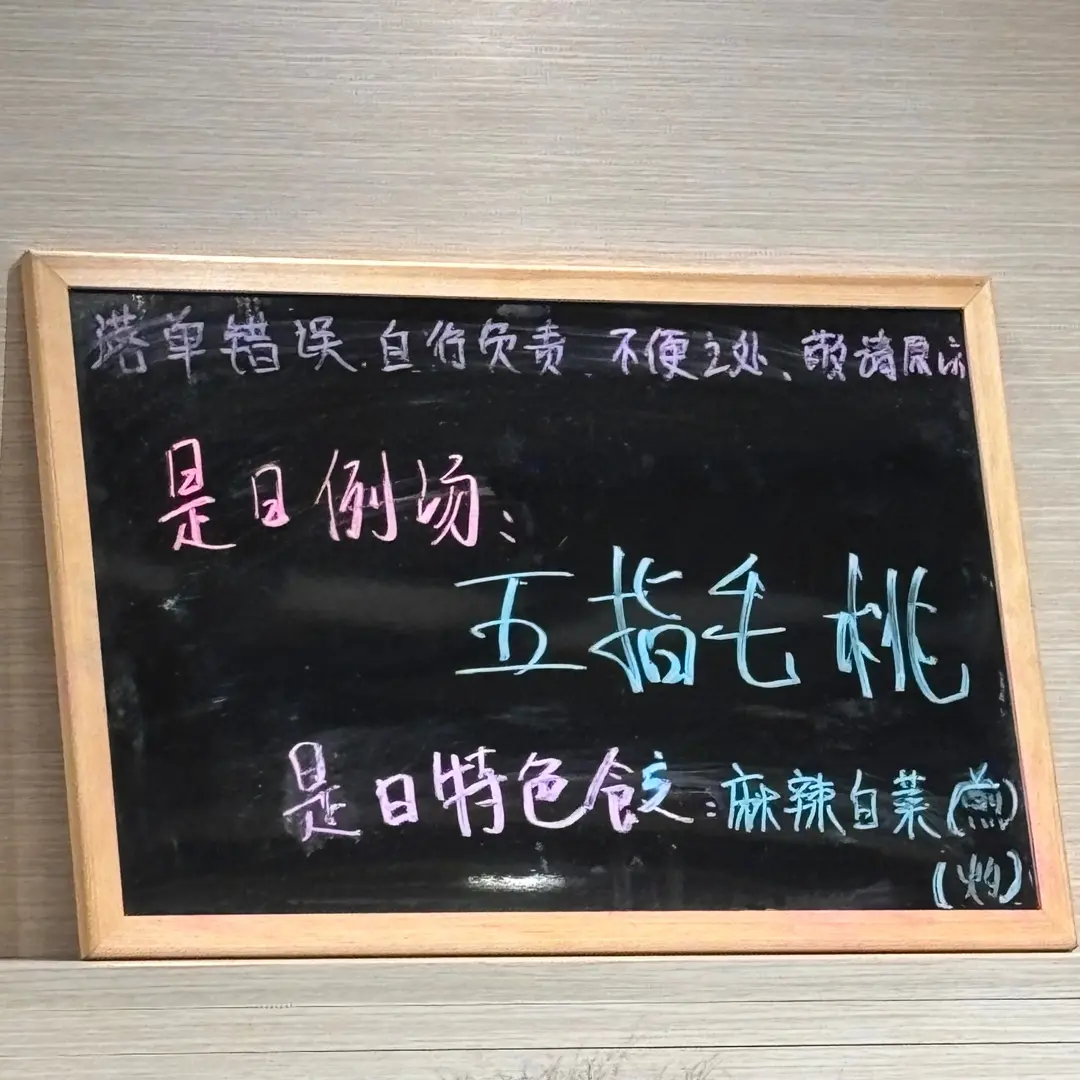 搭单错误.自行负责 不便之处、敬请原谅
是日例汤:
五指毛桃
是日特色餃:麻辣白菜(煎)
(灼)